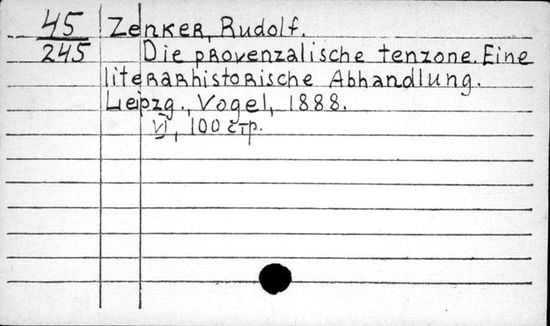 45
245
Zenker, Rudolf.
Die provenzalische tenzone. Eine
literarhistorische Abhandlung.
Leipzg., Vogel, 1888.
VI, 100 стр.